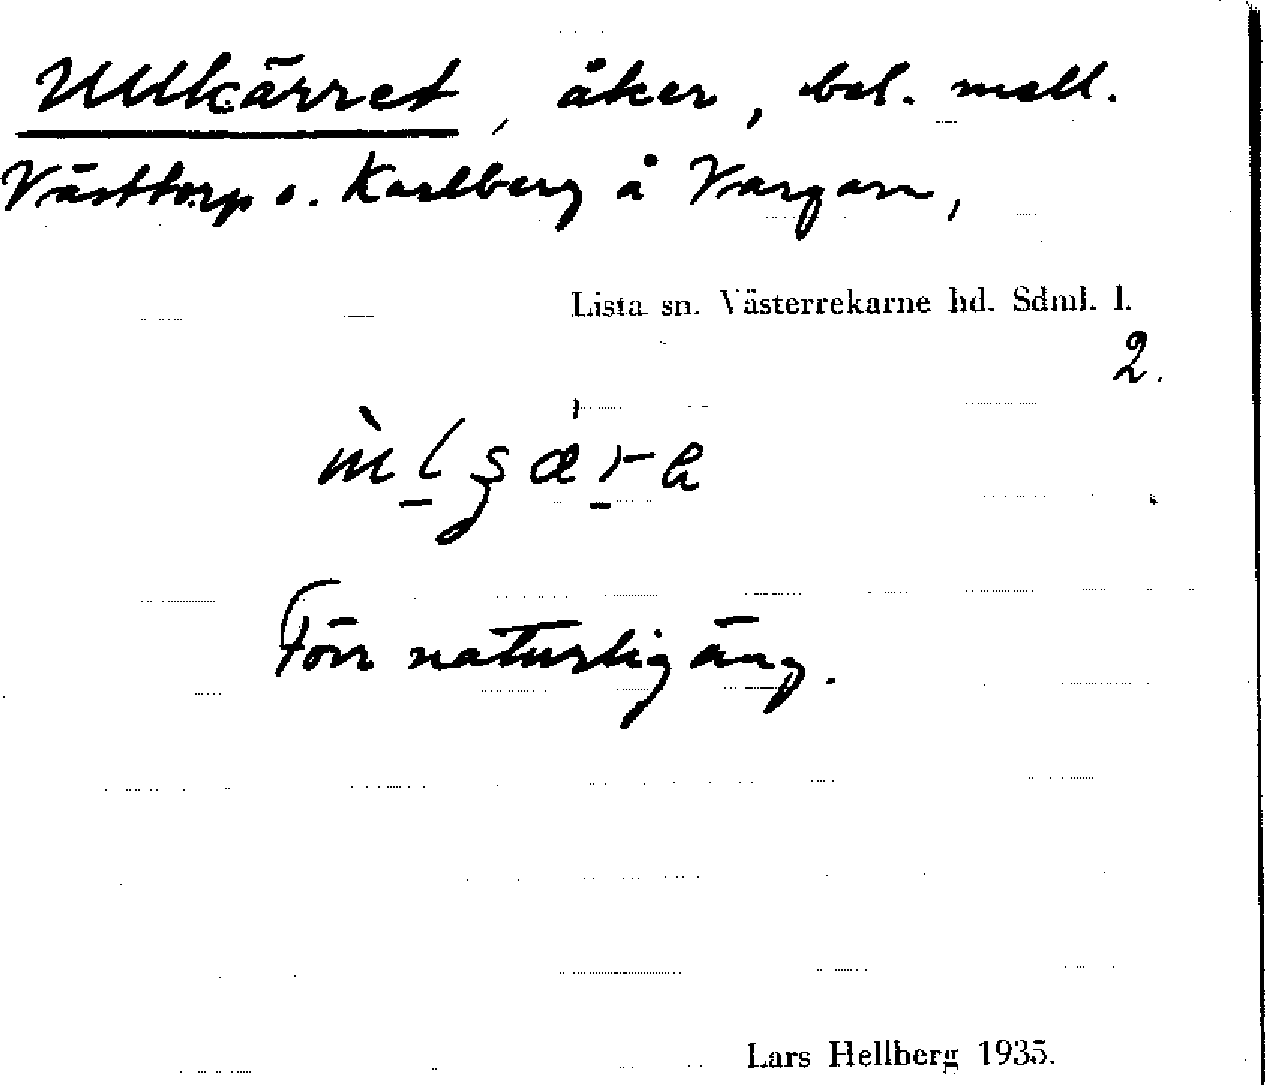 Ullkärret, åker, bel. mell.
Västtorp o. Karlberg å Vargarn,
Lista sn. Västerrekarne hd. Sdml. l.
2.
Förr naturlig äng.
Lars Hellberg 1935.